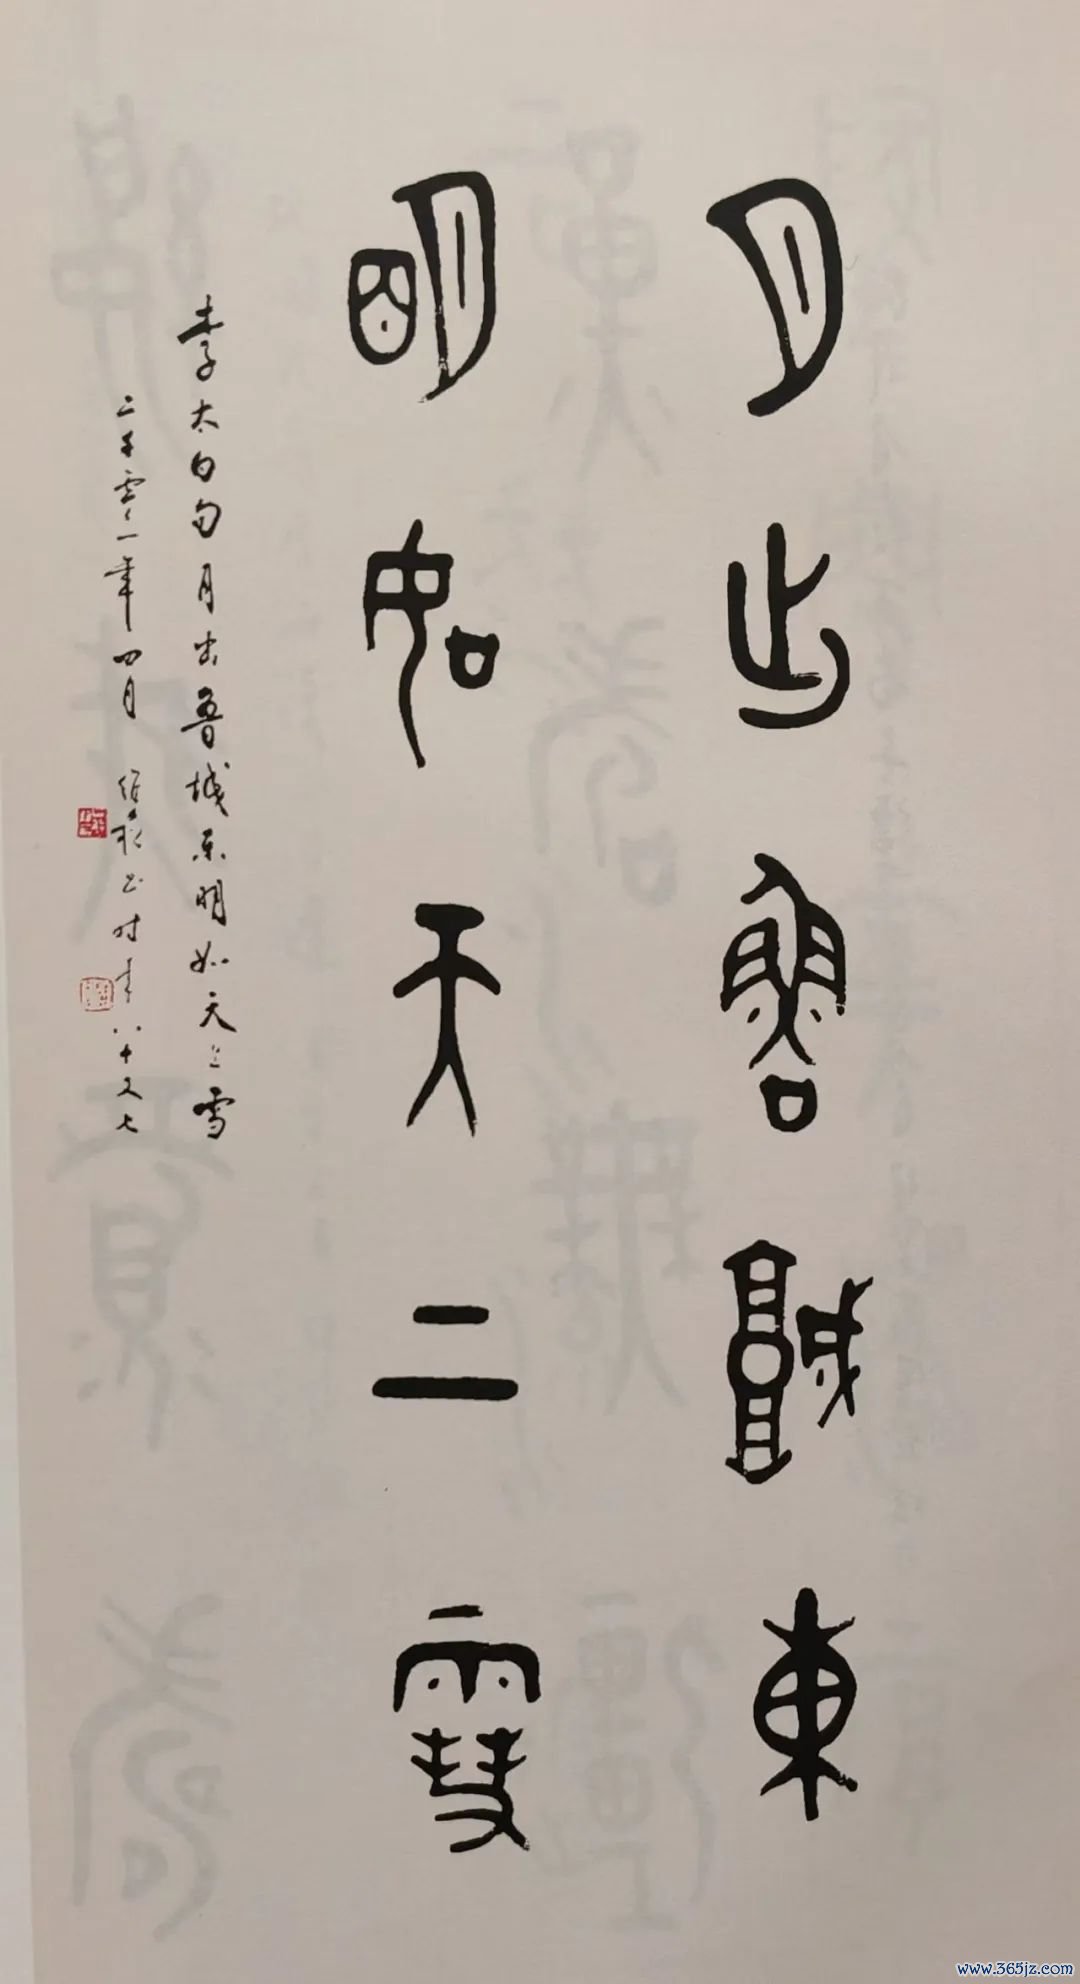 月出魯城東
明如天上雪
李太白句月出魯城东明如天上雪
二千零一年四月 书时年八十又七
www.365jz.com